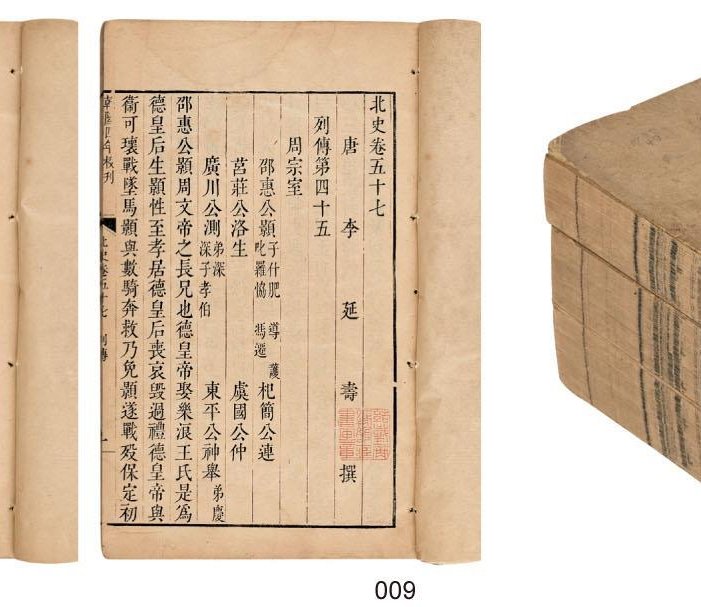 北史卷五十七
唐 李 延 壽 撰
列傳第四十五
周宗室
邵惠公顥 子什肥 導 護 叱羅協 馮遷 杞簡公連
莒莊公洛生 虞國公仲
廣川公測 弟深 深子孝伯 東平公神舉 弟慶
邵惠公顥周文帝之長兄也德皇帝娶樂浪王氏是為
德皇后生顥性至孝居德皇后喪哀毀過禮德皇帝與
衞可瓌戰墜馬顥與數騎奔救乃免顥遂戰歿保定初
北史卷五十七 列傳 一
009